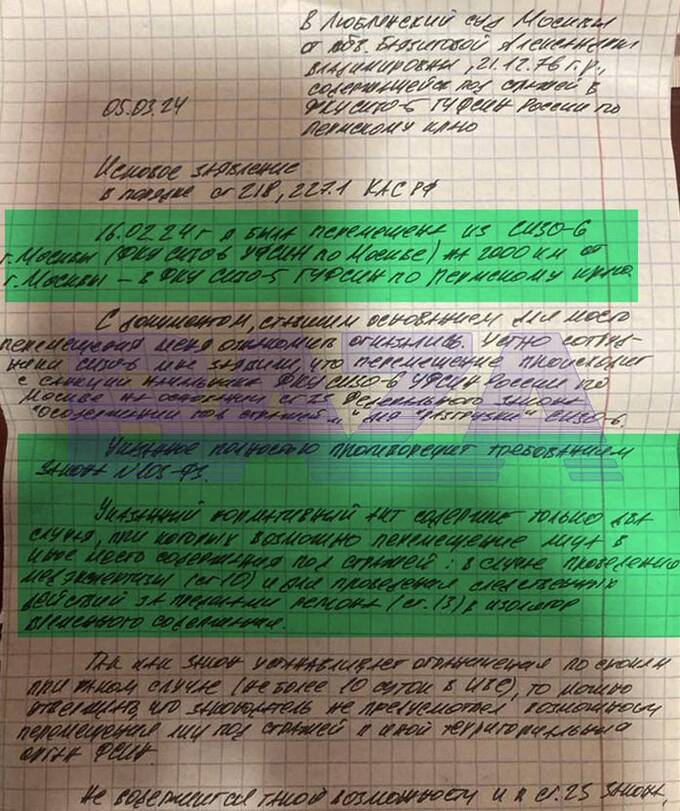 В Люблинский суд Москвы
от обв. Баязитовой Александры
Владимировны, 21.12.76 г.р.,
содержащейся под стражей в
ФКУ СИЗО-5 ГУФСИН России по
Пермскому краю
05.03.24
Исковое заявление
в порядке ст 218, 227.1 КАС РФ
16.02.24 г я была перемещена из СИЗО-6
г. Москвы (ФКУ СИЗО6 УФСИН по Москве) на 2000 км от
г. Москвы – в ФКУ СИЗО-5 ГУФСИН по Пермскому краю.
С документом, ставшим основанием для моего
перемещения меня ознакомить отказались. Устно сотруд-
ники СИЗО-6 мне заявили, что перемещение происходит
с санкции начальника ФКУ СИЗО-6 УФСИН России по
Москве на основании ст 25 Федерального закона
"О содержании под стражей..." для "разгрузки" СИЗО-6.
BAZA
Указанное полностью противоречит требованиям
закона №103-ФЗ.
Указанный нормативный акт содержит только два
случая, при которых возможно перемещение лица в
иное место содержания под стражей: в случае проведения
медэкспертизы (ст 10) и для проведения следственных
действий за пределами региона (ст. 13) в изолятор
временного содержания.
Так как закон устанавливает ограничения по срокам
при таком случае (не более 10 суток в ИВС), то можно
утверждать, что законодатель не предусмотрел возможности
перемещения лиц под стражей в иной территориальный
орган ФСИН.
Не содержится такой возможности и в ст. 25 закона,